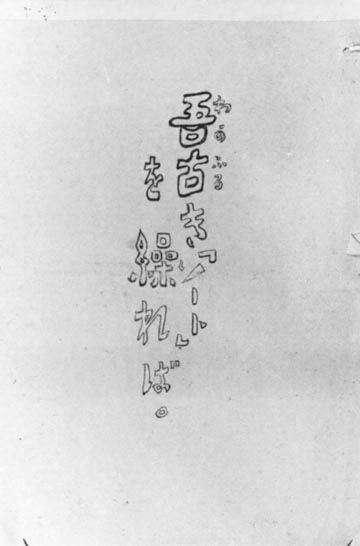 吾古き「ノート」
を繰れば。
わが ふる